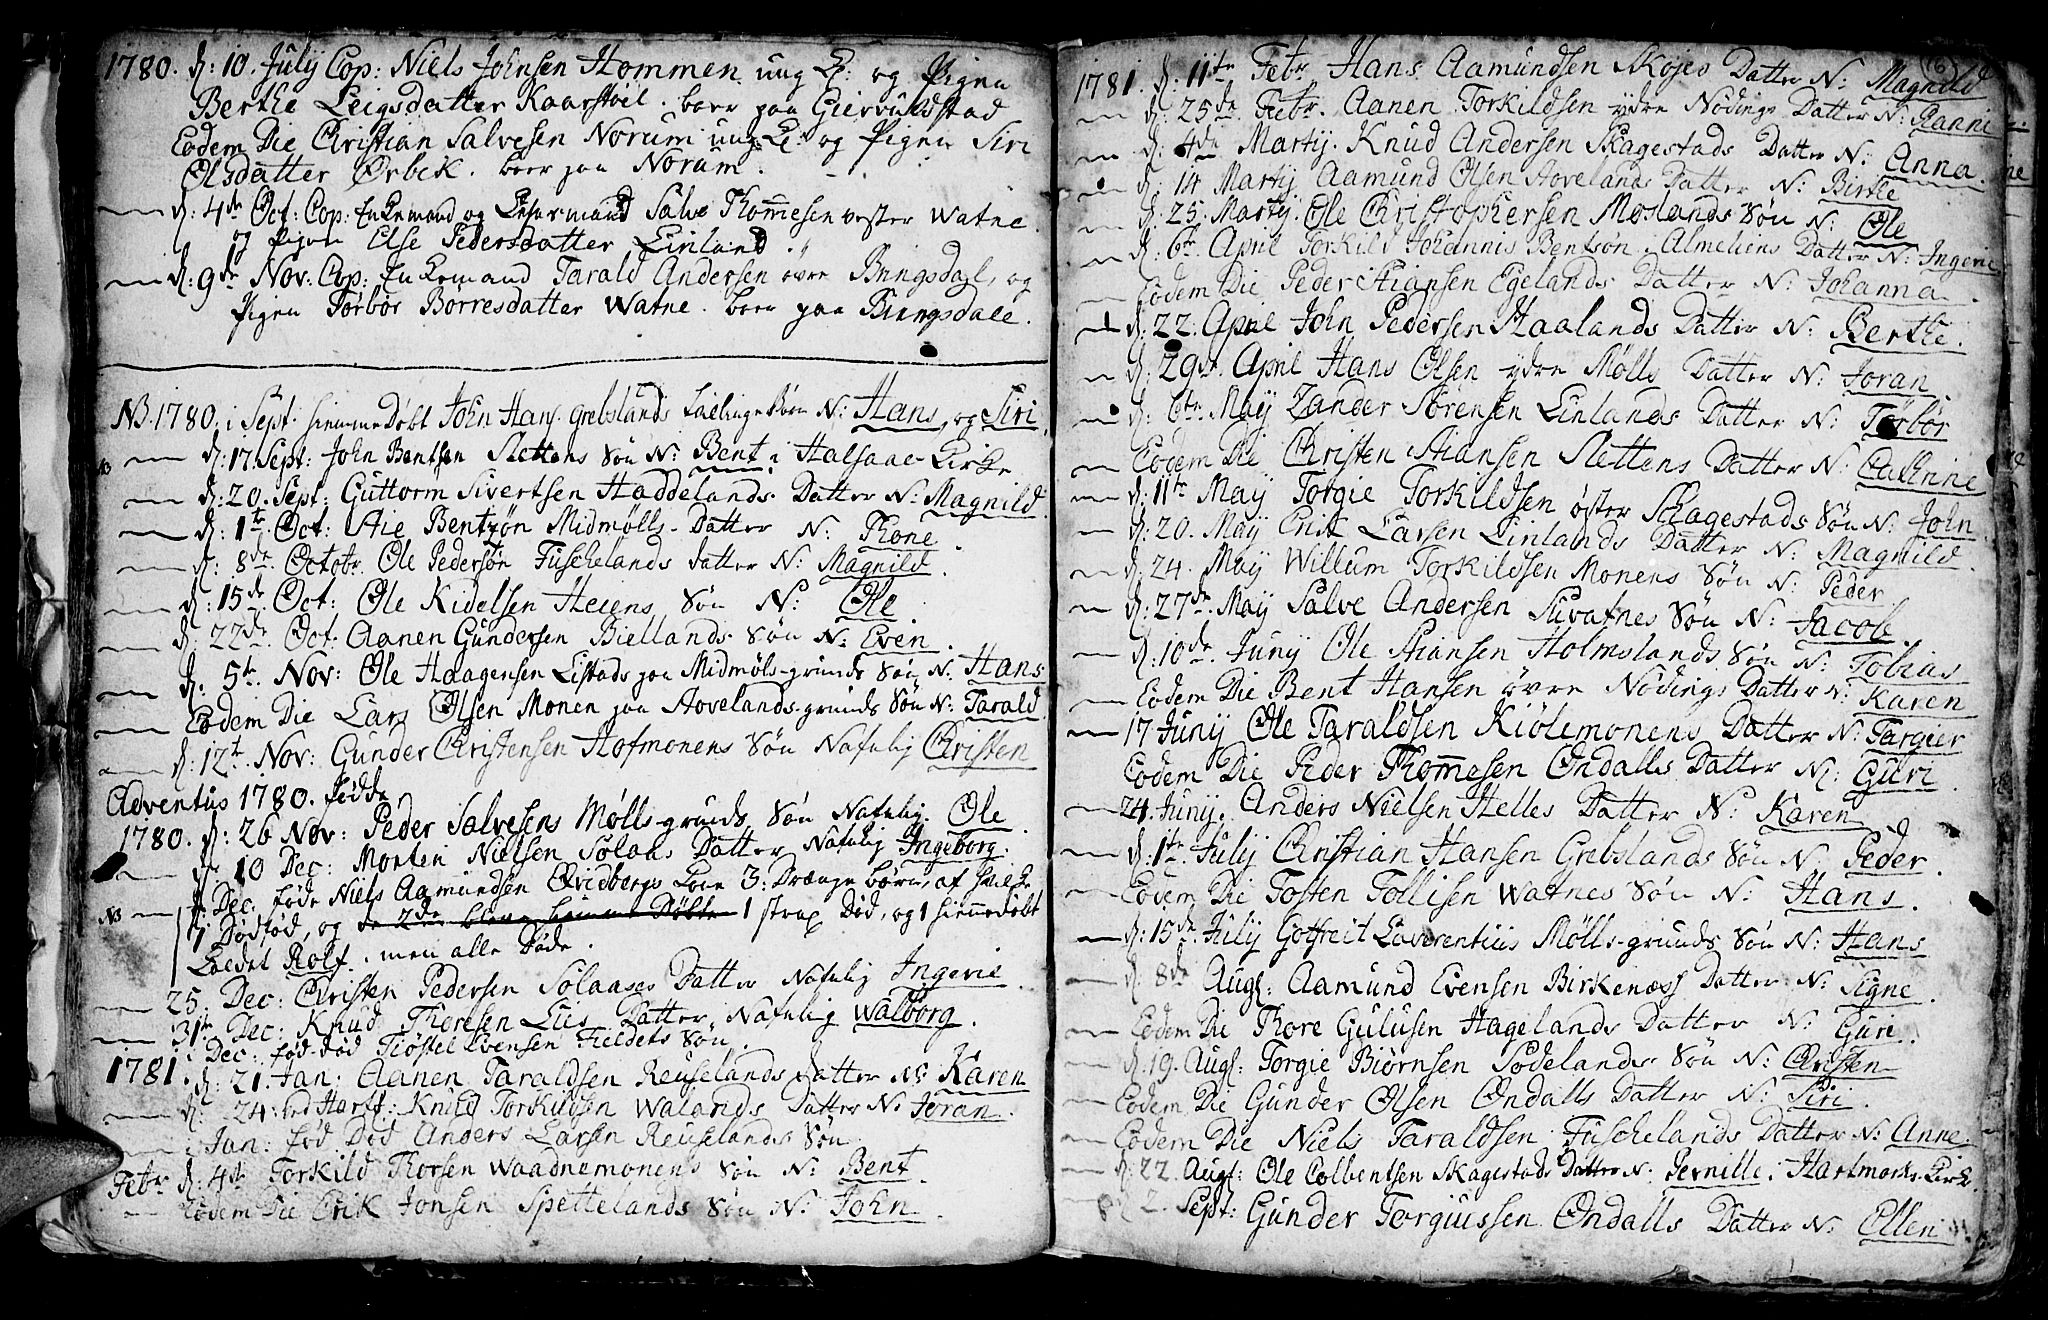 1780. d: 10. July Cop: Niels Johnsen Hommen ung K: og Pigen
Berthe Leigsdatter Kaarstøel. boer paa Giervuldstad
Eodem Die Christian Salvesen Norum ung K: og Pigen Siri
Olsdatter Ørbek. boer paa Norum.
d: 4de Oct: Cop: Enkemand og Salve Thommesen vester Watne
og Pigen Else Pedersdatter Linland.
d: 9de Nov: Cop: Enkemand Tarald Andersen øvre Bringsdahl, og
Pigen Torbor Borresdatter Watne. boer paa Bringsdale.
NB. 1780. i Sept. hiemmedøbt John Hans: Grebslands Tvillinge Børn N: Hans, og Siri.
NB d: 17. Sept: John Bentsen Slettens Søn N: Bent i Halsaae Kirke
d: 20. Sept: Guttorm Sivertsen Haddelands Datter N: Magnild
d: 1te Oct: Aie Bentzøn Midmølls Datter N: Thone.
d: 8de Octobr. Ole Pedersøn Fuschelands datter N: Magnild.
d: 15de Oct: Ole Kidelsen Heiens Søn N: Ole
d: 22de Oct. Aanen Gundersen Biellands Søn N: Even.
d: 5te Nov: Ole Haagensen Listads paa Midmøls-grunds Søn N: Hans
Eodem Die Lars Olsen Monen paa Hovelands-grunds Søn N: Tarald
d: 12te Nov: Gunder Christensen Hofmonens Søn Nafnlig Christen
Adventus 1780. fødde
1780. d: 26 Nov: Peder Salvesens Mølls-grunds Søn Nafnlig. Ole
d: 10 Dec: Morten Nielsen Solaas Datter Nafnlig Ingeborg.
NB i Dec: føde Niels Aamundsen Qvidbergs Kone 3: Drænge børn, af hvilke
1 Dødfød, og de 2de bleve hiemme Døbte 1 strax Død, og 1 hiemmedøbt
kaldet Rolf. men alle Døde.
25. Dec: Christen Pedersen Solaases Datter Nafnlig Ingerie
31te Dec: Knud Thoresen Lies Datter Nafnlig Walborg.
i Dec: fød død Tiøstel Evensen Fieldets Søn.
1781. d: 21. Jan: Aanen Taraldsen Reuselands Datter N: Karen
d: 24: ved Hartf: Knud Torkildsen Walands Datter N: Joran.
i Jan: fød Død Anders Larsen Reuselands Søn
Febr. d: 4de Torkild Thorsen Waadnemonens Søn N: Bent
Eodem Die Erik Jonsen Spettelands Søn N: John
16
1781. d: 11te Febr. Hans Aamundsen Skojes Datter N: Magnild
d: 25de Febr. Aanen Torkildsen ydre Nødings Datter N: Ranni
d: 4de Martij. Knud Andersen Skagestads Datter N: Anna.
d: 14 Martij Aamund Olsen Hovelands Datter N: Birthe
d: 25. Martij. Ole Christophersen Moslands Søn N: Ole
d: 6te April Torkild Johannis Bentsøn i Almeliens Datter N: Ingerie
Eodem Die Peder Stiansen Egelands Datter N: Johanna.
d: 22. April John Pedersen Haalands Datter N: Berthe.
d: 29de April Hans Olsen ydre Mølls Datter N: Joran
d: 6te May Zander Sørensen Linlands Datter N: Torbor
Eodem Die Christen Stiansen Slettens Datter N: Cathrine
d: 11te May Torgie Torkildsen øster Skagestads Søn N: John
d: 20. May Erik Larsen Linlands Datter N: Magnild.
d: 24. May Willum Torkildsen Monens Søn N: Peder
d: 27de May Salve Andersen Suvatnes Søn N: Jacob.
d: 10de Juny Ole Stiansen Holmslands Søn N: Tobias
Eodem Die Bent Hansen øvre Nødings Datter N: Karen
17 Juny Ole Taraldsen Kiølemonens Datter N: Targier
Eodem Die Peder Thommesen Øndalls Datter N: Guri
24. Juny. Anders Nielsen Helles Datter N: Karen
d: 1te July Christian Hansen Grebslands Søn N: Peder.
Eodem Die Tosten Tollisen Watnes Søn N: Hans.
d: 15de July Gotfreit Laverentius Mølls-grunds Søn N: Hans
d: 8de Aug: Aamund Evensen Birkenæss Datter N: Signe.
Eodem Die Thore Gulusen Hagelands Datter N: Guri.
d: 19. Aug: Torgie Biørnsen Sodelands Søn N: Christen
Eodem Die Gunder Olsen Øndalls Datter N: Siri.
Eodem Die Niels Taraldsen Fuschelands Datter N: Anne.
d: 22. Aug: Ole Colbentsen Skagestads Datter N: Pernille. i Hartmarks-Kirk.
d: 2. Sept: Gunder Torguessen Øndalls Datter N: Ellen